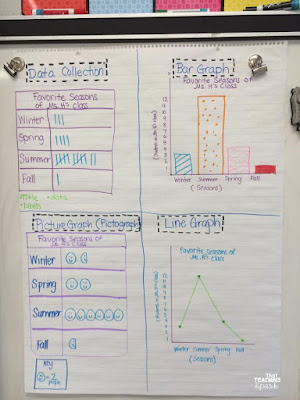 Data Collection
Favorite Seasons
of Ms. H's Class
Winter
Spring
Summer
Fall
•title •data
•labels
Bar Graph
Favorite Seasons of
Ms. H's Class
12
11
10
9
8
7
6
5
4
3
2
1
Winter Summer Spring Fall
(Seasons)
Picture Graph (Pictograph)
Favorite Seasons of
Ms. H's Class
Winter
Spring
Summer
Fall
Key
= 2
people
Line Graph
Favorite Seasons of
Ms. H's Class
Winter Summer Spring Fall
(Seasons)
That
TEACHING
Spark